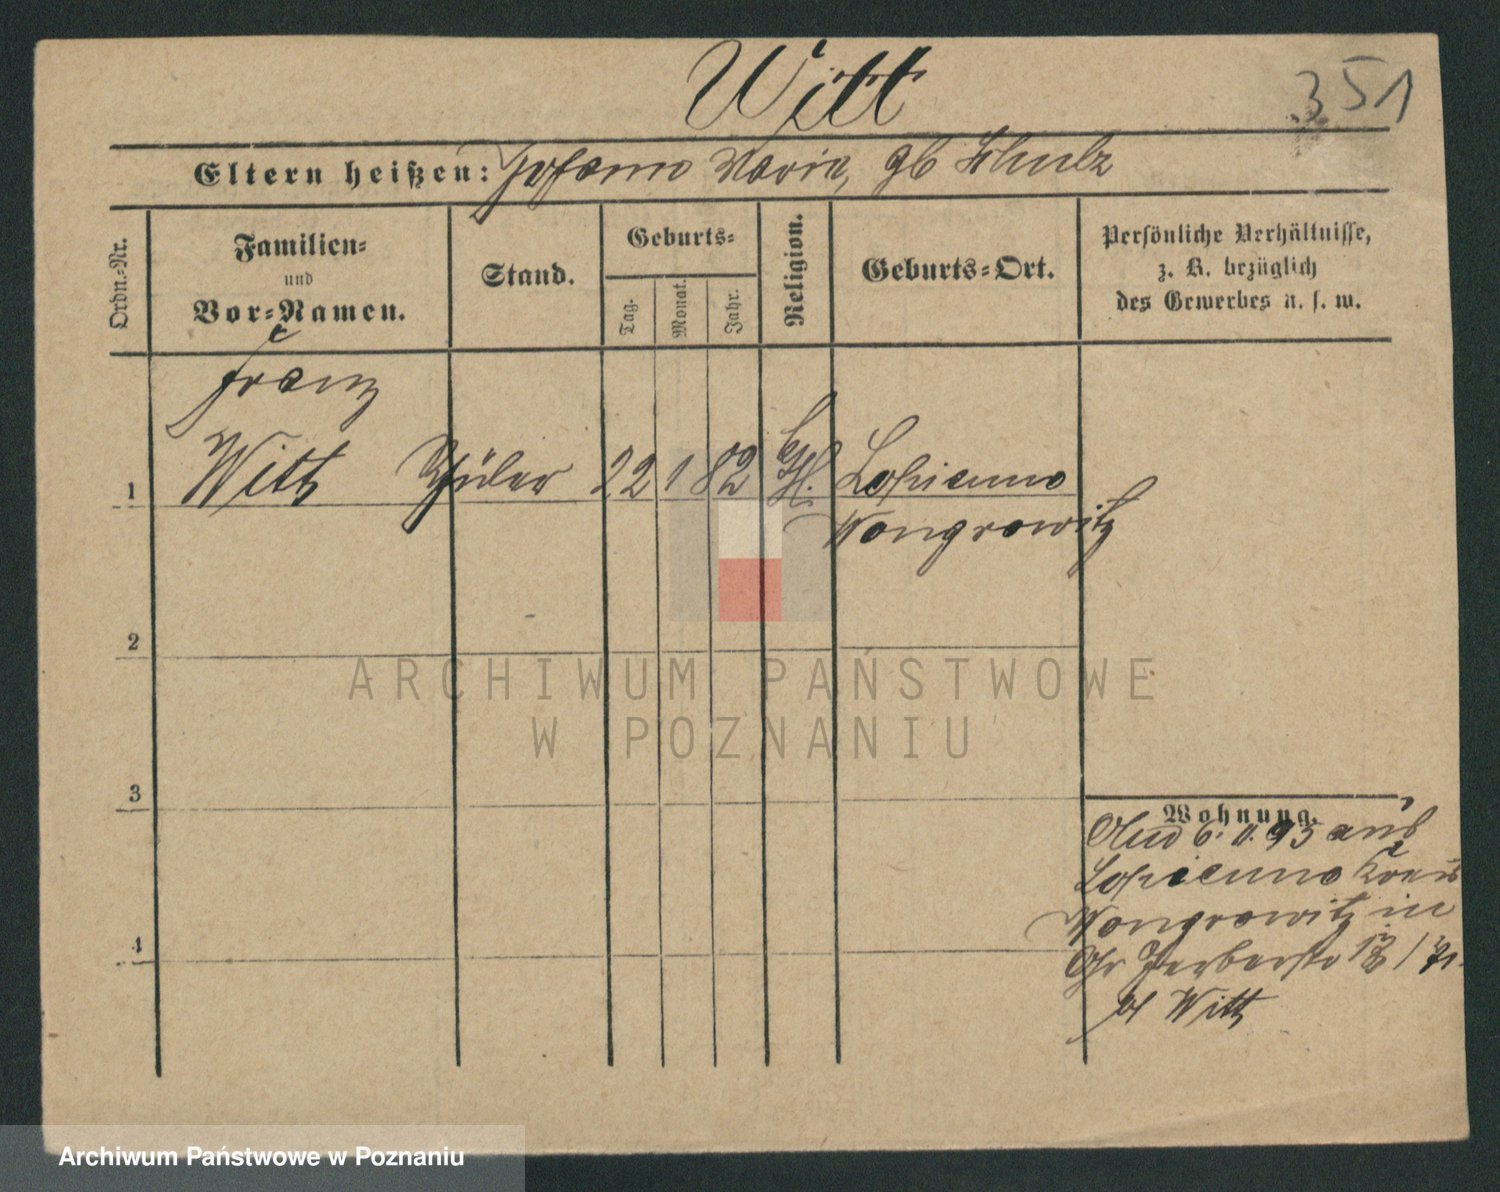 Witt
351
Eltern heißen: Johann Maria, gb Schulz
Ordn.-Nr.
Familien-
und
Vor-Namen.
Stand.
Geburts-
Tag.
Monat.
Jahr.
Religion.
Geburts-Ort.
Persönliche Verhältnisse,
z. B. bezüglich
des Gewerbes u. s. w.
Franz
1 Witt Schüler 22 1 82 Lopienno
Wongrowitz
2
3
4
Wohnung.
6. 11. 95 aus
Lopienno Kreis
Wongrowitz in
Gr Gerberstr
bei Witt
ARCHIWUM PAŃSTWOWE
W POZNANIU
Archiwum Państwowe w Poznaniu